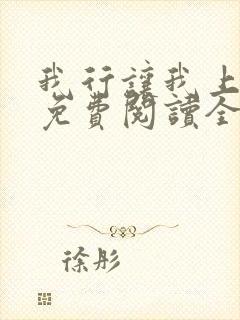 我行讓我上
免費閱讀全
徐彤